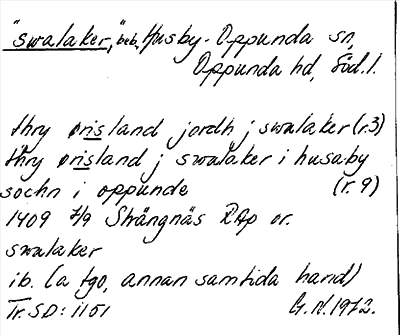 "swalaker," beb., Husby-Oppunda sn,
Oppunda hd, Söd.l.
thry ørisland jordh j swalaker (r.3)
thry ørisland j swalaker i husaby
sochn i oppunde (r. 9)
1409 7/9 Strängnäs RAp or.
swalaker
ib. (a tgo, annan samtida hand)
Tr. SD: 1151 G.N. 1972.